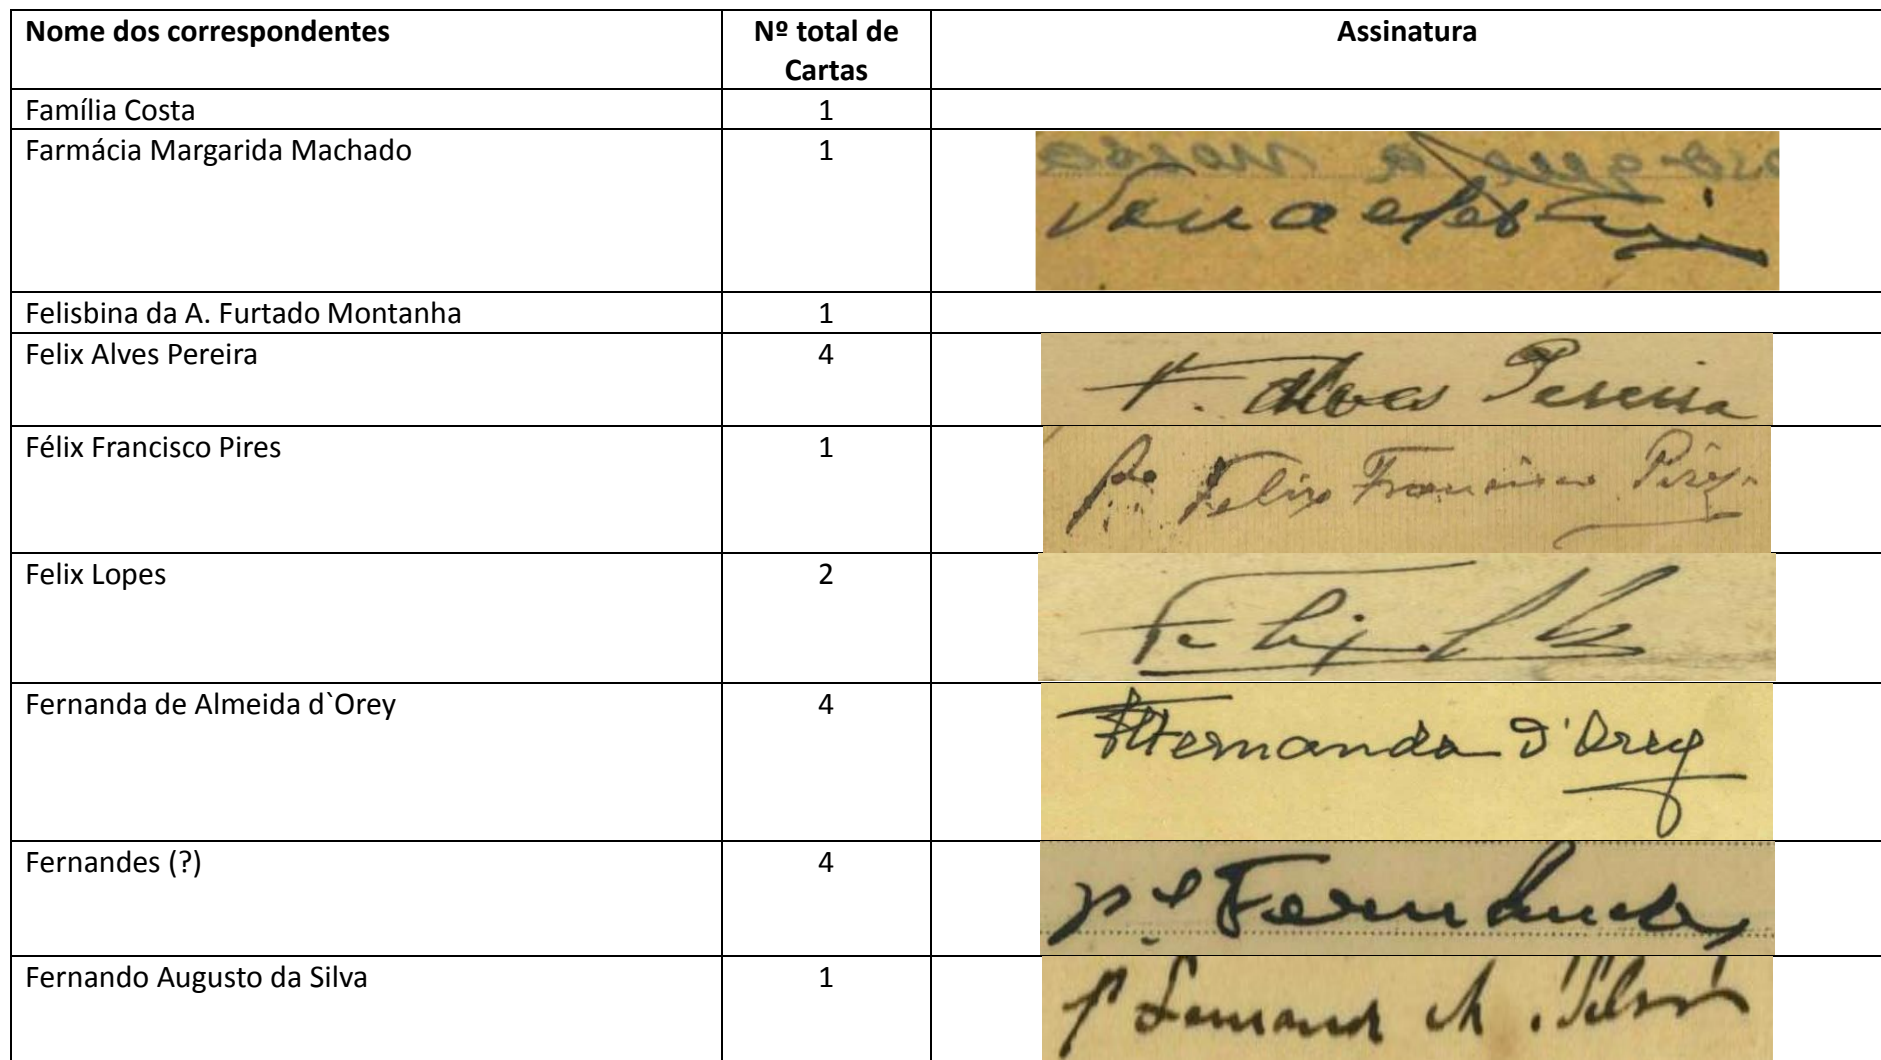 Nome dos correspondentes
Nº total de
Cartas
Assinatura
Família Costa
1
Farmácia Margarida Machado
1
Felisbina da A. Furtado Montanha
1
Felix Alves Pereira
4
F. Alves Pereira
Félix Francisco Pires
1
Pe Felix Francisco Pires
Felix Lopes
2
Felix
Fernanda de Almeida d`Orey
4
Fernanda d'Orey
Fernandes (?)
4
Pe Fernandes
Fernando Augusto da Silva
1
P Fernando A. Silva